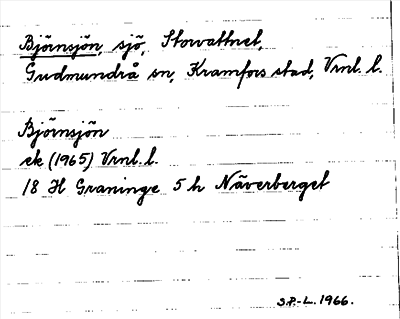 Björnsjön, sjö, Storvattnet,
Gudmundrå sn, Kramfors stad, Vrml. l.
Björnsjön
ek (1965) Vrml. l.
18 H Graninge 5 h Näverberget
S.P.-L. 1966.